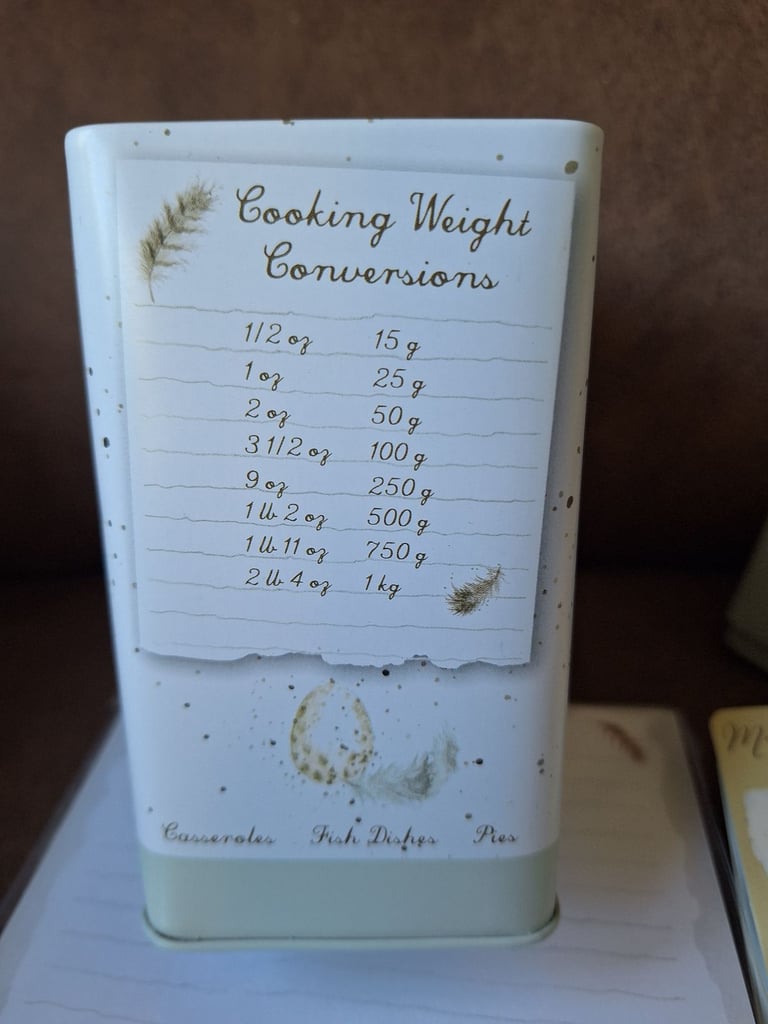 Cooking Weight
Conversions
1/2 oz 15 g
1 oz 25 g
2 oz 50 g
3 1/2 oz 100 g
9 oz 250 g
1 lb 2 oz 500 g
1 lb 11 oz 750 g
2 lb 4 oz 1 kg
Casseroles Fish Dishes Pies